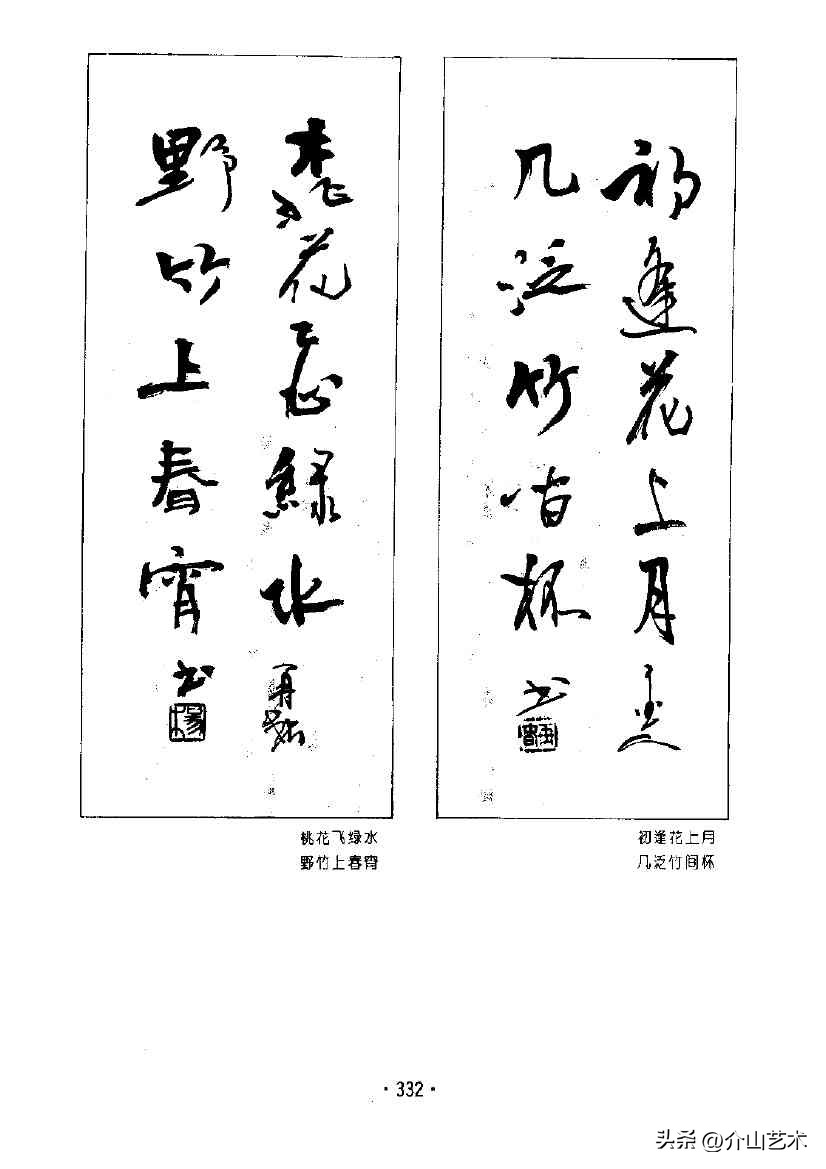 初逢花上月
几泛竹间杯 书
桃花飞緑水
野竹上春宵 书
初逢花上月
几泛竹间杯
桃花飞绿水
野竹上春宵
·332·
头条 @介山艺术